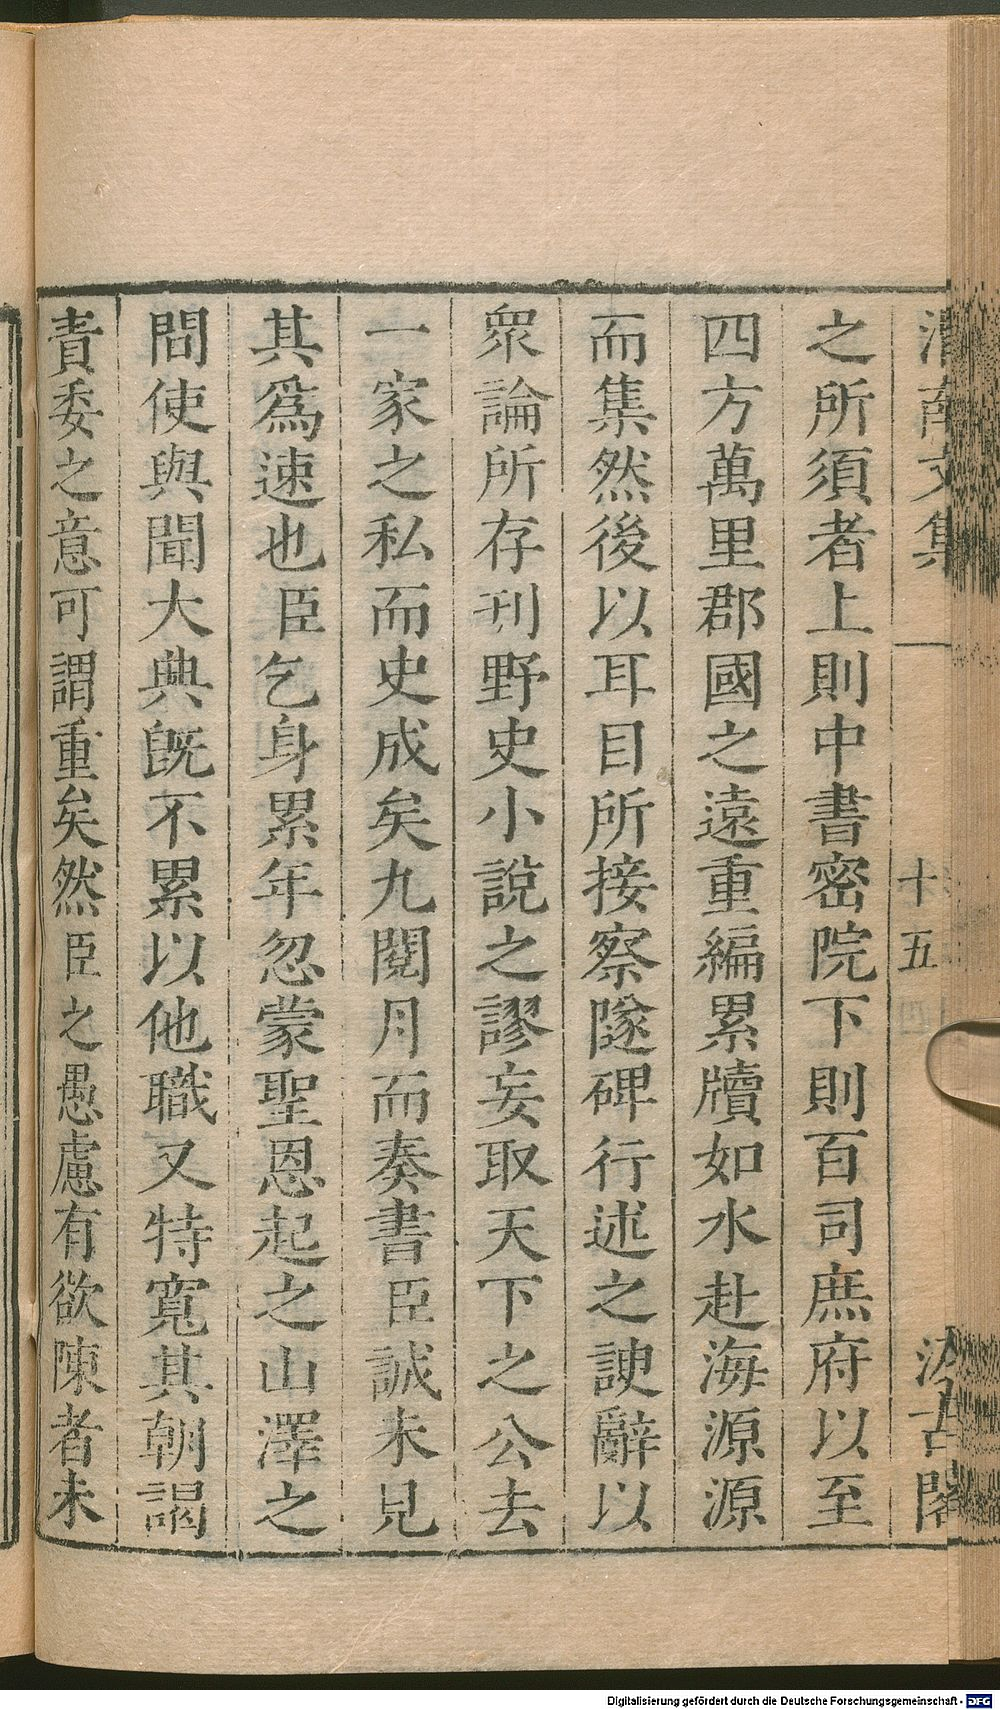 渭南文集 十五 汲古閣
之所須者上則中書密院下則百司庶府以至
四方萬里郡國之遠重編累牘如水赴海源源
而集然後以耳目所接察隧碑行述之諛辭以
衆論所存刊野史小說之謬妄取天下之公去
一家之私而史成矣九閱月而奏書臣誠未見
其爲速也臣乞身累年忽蒙聖恩起之山澤之
間使與聞大典旣不累以他職又特寬其朝謁
責委之意可謂重矣然臣之愚慮有欲陳者未
Digitalisierung gefördert durch die Deutsche Forschungsgemeinschaft - DFG